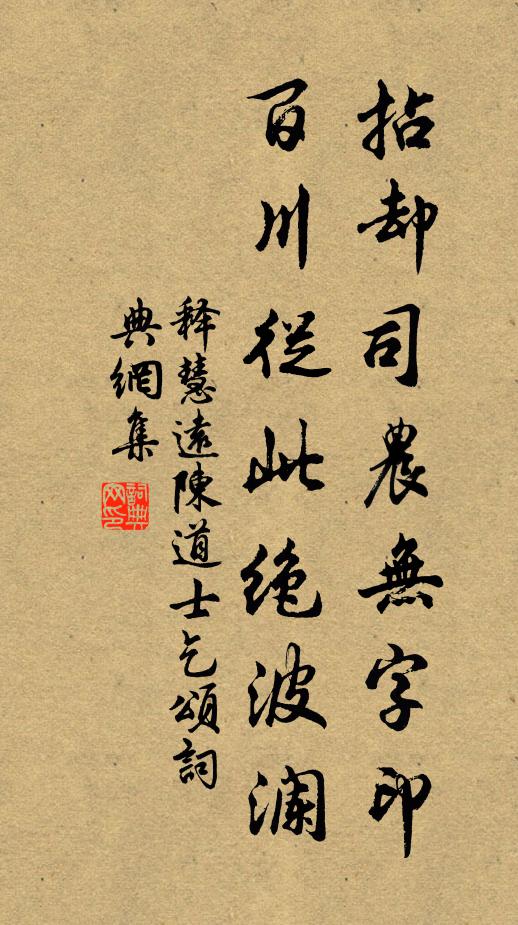 拈却司農無字印
百川從此絶波瀾
释慧遠陳道士乞頌詞
典網集
詞典网印